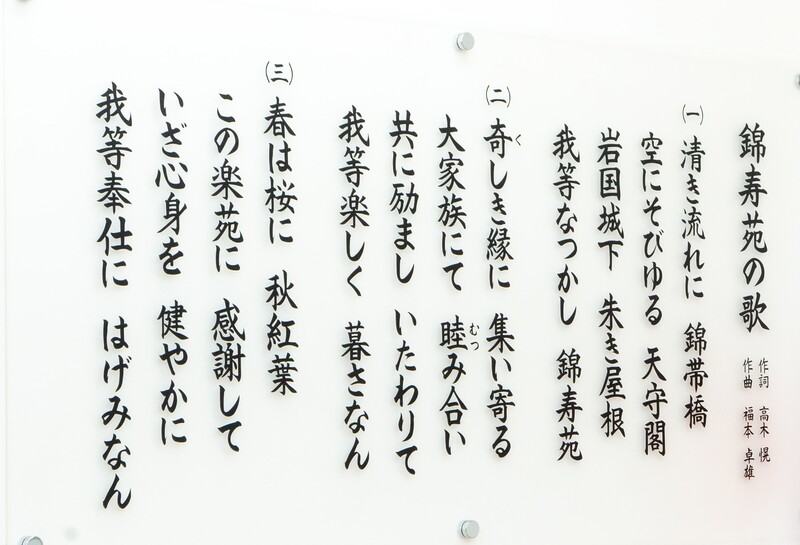 錦寿苑の歌
作詞 高木 愰
作曲 福本 卓雄
㈠ 清き流れに 錦帯橋
空にそびゆる 天守閣
岩国城下 朱き屋根
我等なつかし 錦寿苑
㈡ 奇しき縁に 集い寄る
大家族にて 睦み合い
共に励まし いたわりて
我等楽しく 暮さなん
㈢ 春は桜に 秋紅葉
この楽苑に 感謝して
いざ心身を 健やかに
我等奉仕に はげみなん